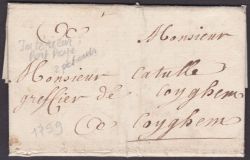 Monsieur
Monsieur catulle
greffier de Coyghem
Coyghem
1759